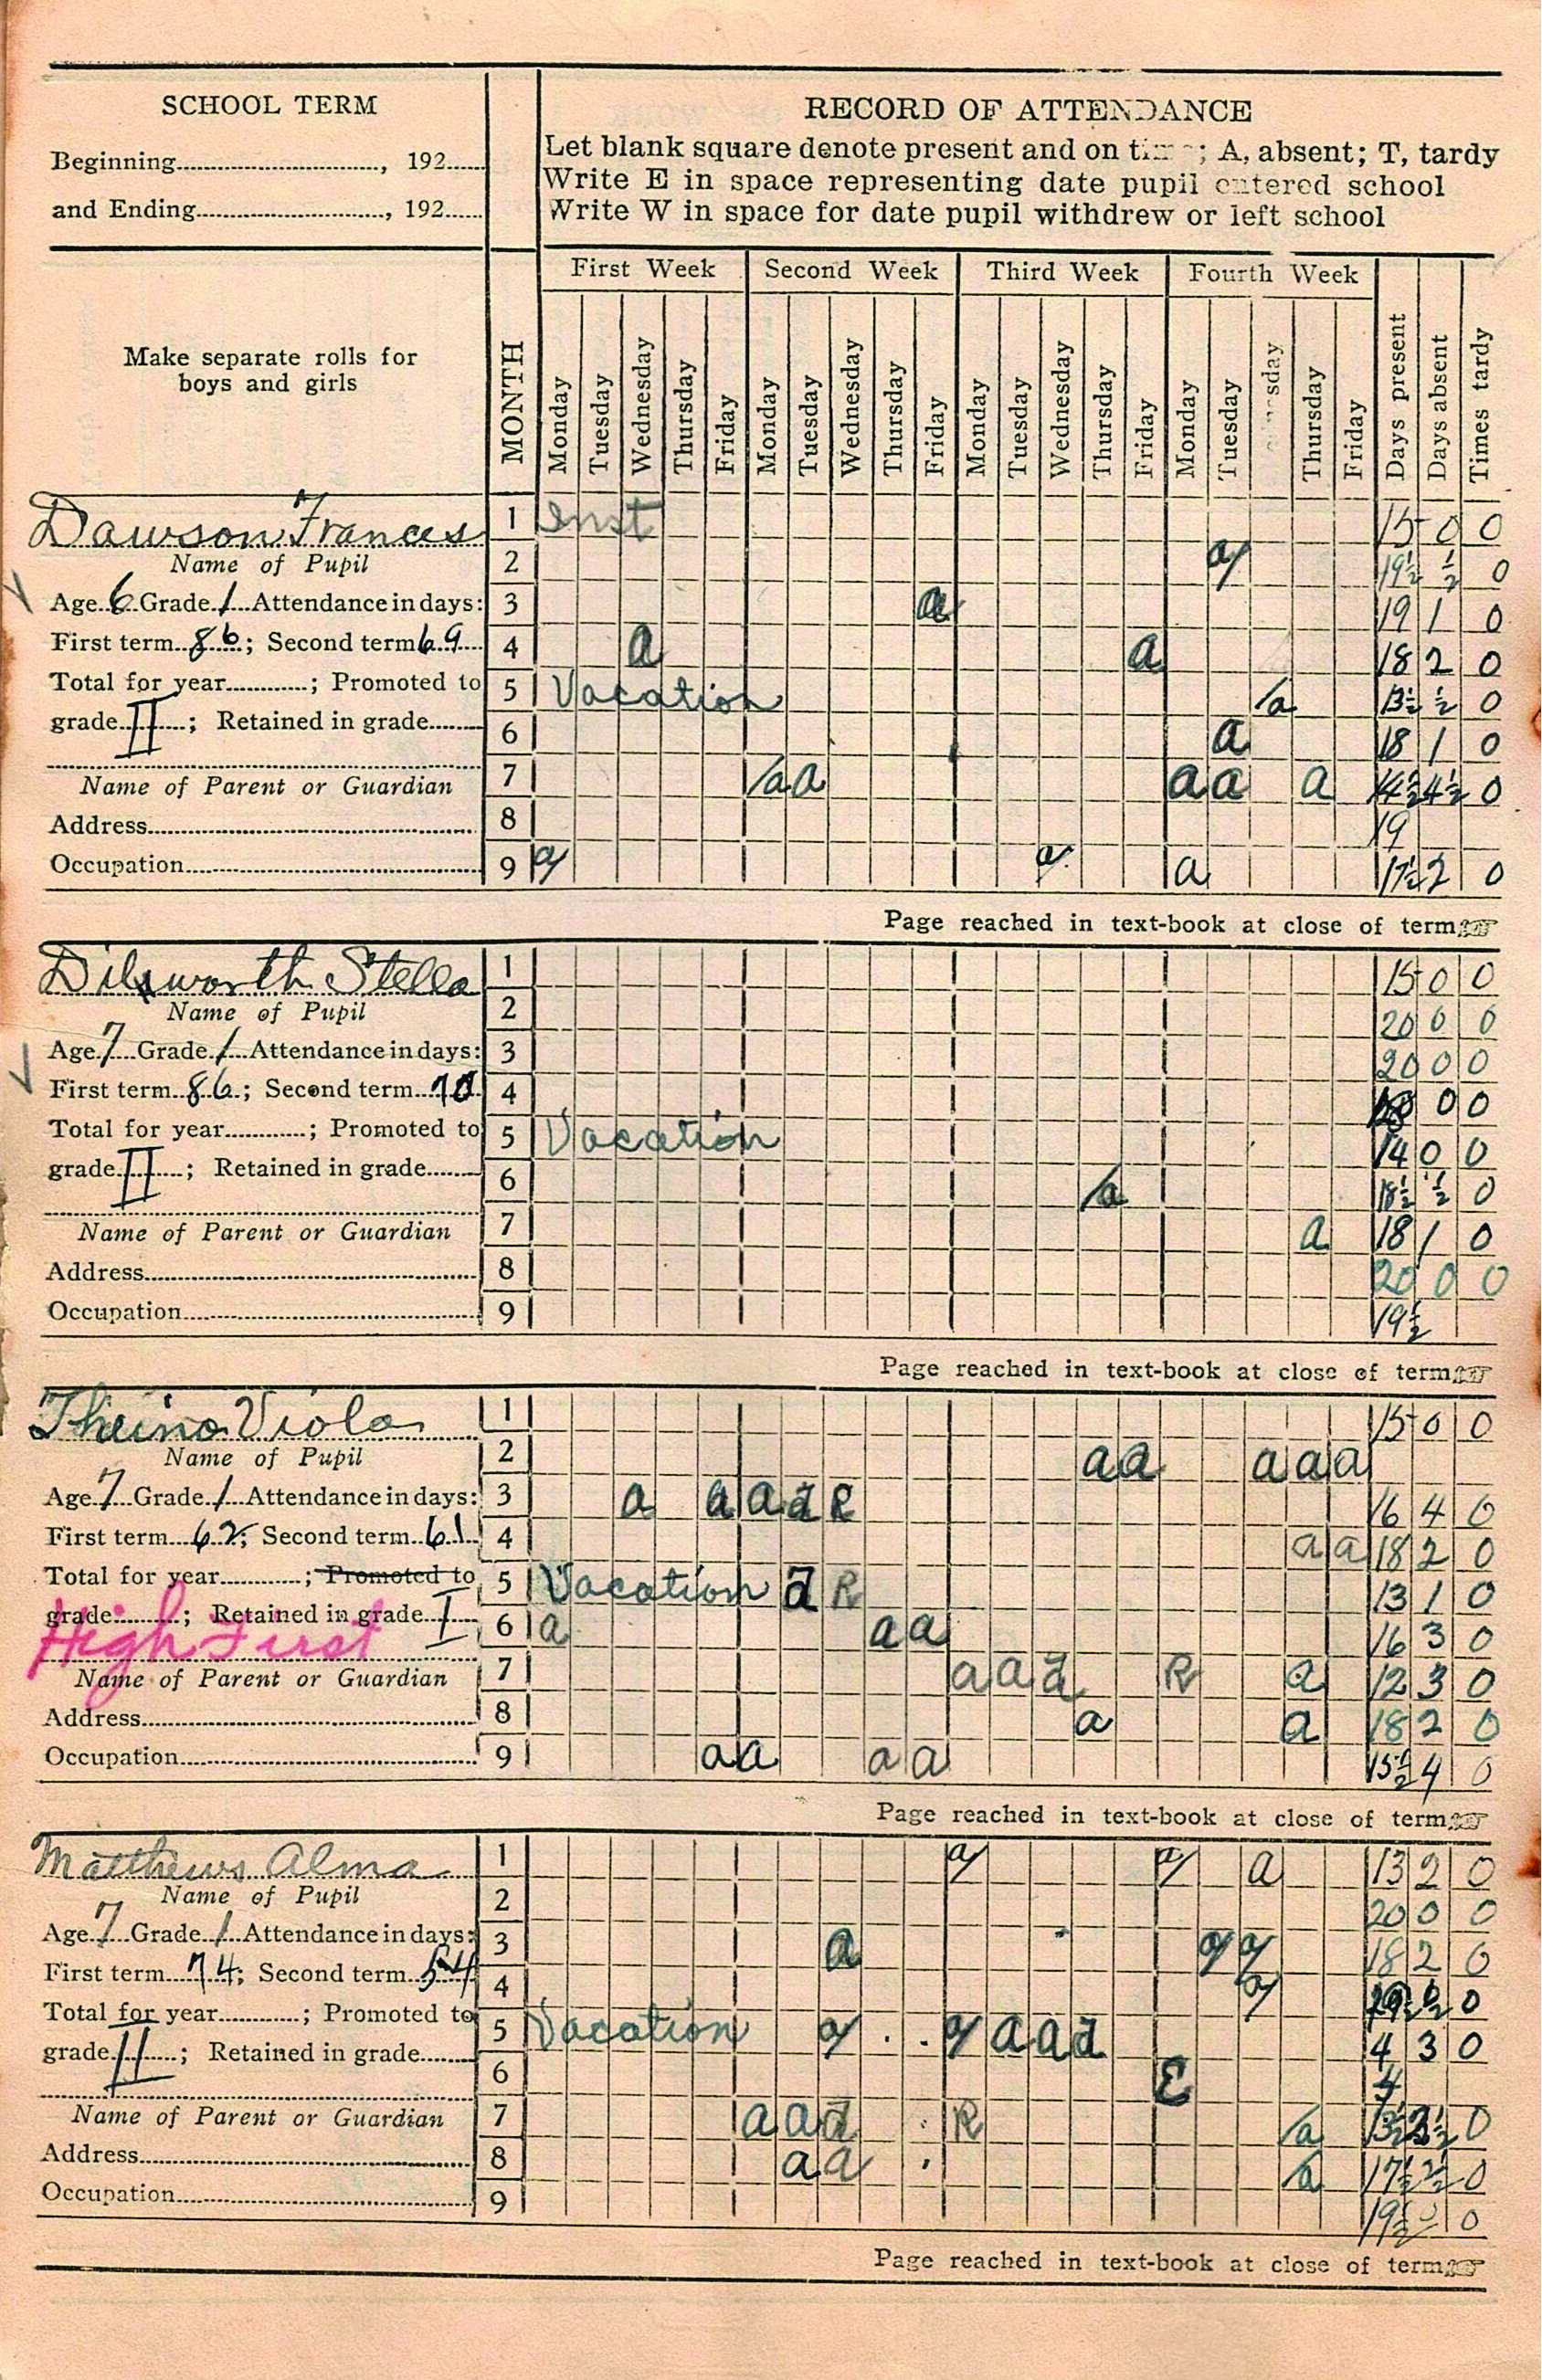 SCHOOL TERM
Beginning............, 192......
and Ending............, 192......
RECORD OF ATTENDANCE
Let blank square denote present and on ; A, absent; T, tardy
Write E in space representing date pupil entered school
Write W in space for date pupil withdrew or left school
Make separate rolls for
boys and girls
MONTH
First Week Second Week Third Week Fourth Week
Monday Tuesday Wednesday Thursday Friday Monday Tuesday Wednesday Thursday Friday Monday Tuesday Wednesday Thursday Friday Monday Tuesday Thursday Friday Days present Days absent Times tardy
Dawson Frances
Name of Pupil
Age 6 Grade 1 Attendance in days:
First term 86; Second term 69
Total for year............; Promoted to
grade II; Retained in grade........
Name of Parent or Guardian
Address............
Occupation............
1 Inst 15 0 0
2 a 19½ ½ 0
3 a 19 1 0
4 a a 18 2 0
5 Vacation a 13½ ½ 0
6 a 18 1 0
7 a a a a a 14½ 4½ 0
8 19
9 a a a 17½ 2 0
Page reached in text-book at close of term
Dilsworth Stella
Name of Pupil
Age 7 Grade 1 Attendance in days:
First term 86; Second term 70
Total for year............; Promoted to
grade II; Retained in grade........
Name of Parent or Guardian
Address............
Occupation............
1 15 0 0
2 20 0 0
3 20 0 0
4 0 0
5 Vacation 14 0 0
6 a 18½ ½ 0
7 a 18 1 0
8 20 0 0
9 19½
Page reached in text-book at close of term
Viola
Name of Pupil
Age 7 Grade 1 Attendance in days:
First term 62; Second term 61
Total for year............; Promoted to
grade............; Retained in grade I
High First
Name of Parent or Guardian
Address............
Occupation............
1 15 0 0
2 a a a a a
3 a a a d R 16 4 0
4 a a 18 2 0
5 Vacation d R 13 1 0
6 a a a 16 3 0
7 a a d R a 12 3 0
8 a a 18 2 0
9 a a a a 15½ 4 0
Page reached in text-book at close of term
Matthews Alma
Name of Pupil
Age 7 Grade 1 Attendance in days:
First term 74; Second term 54
Total for year............; Promoted to
grade II; Retained in grade........
Name of Parent or Guardian
Address............
Occupation............
1 a a a 13 2 0
2 20 0 0
3 a a a 18 2 0
4 a ½ 0
5 Vacation a a a a d 4 3 0
6 E 4
7 a a d R a 0
8 a a a 17½ 2½ 0
9 19½ 0
Page reached in text-book at close of term